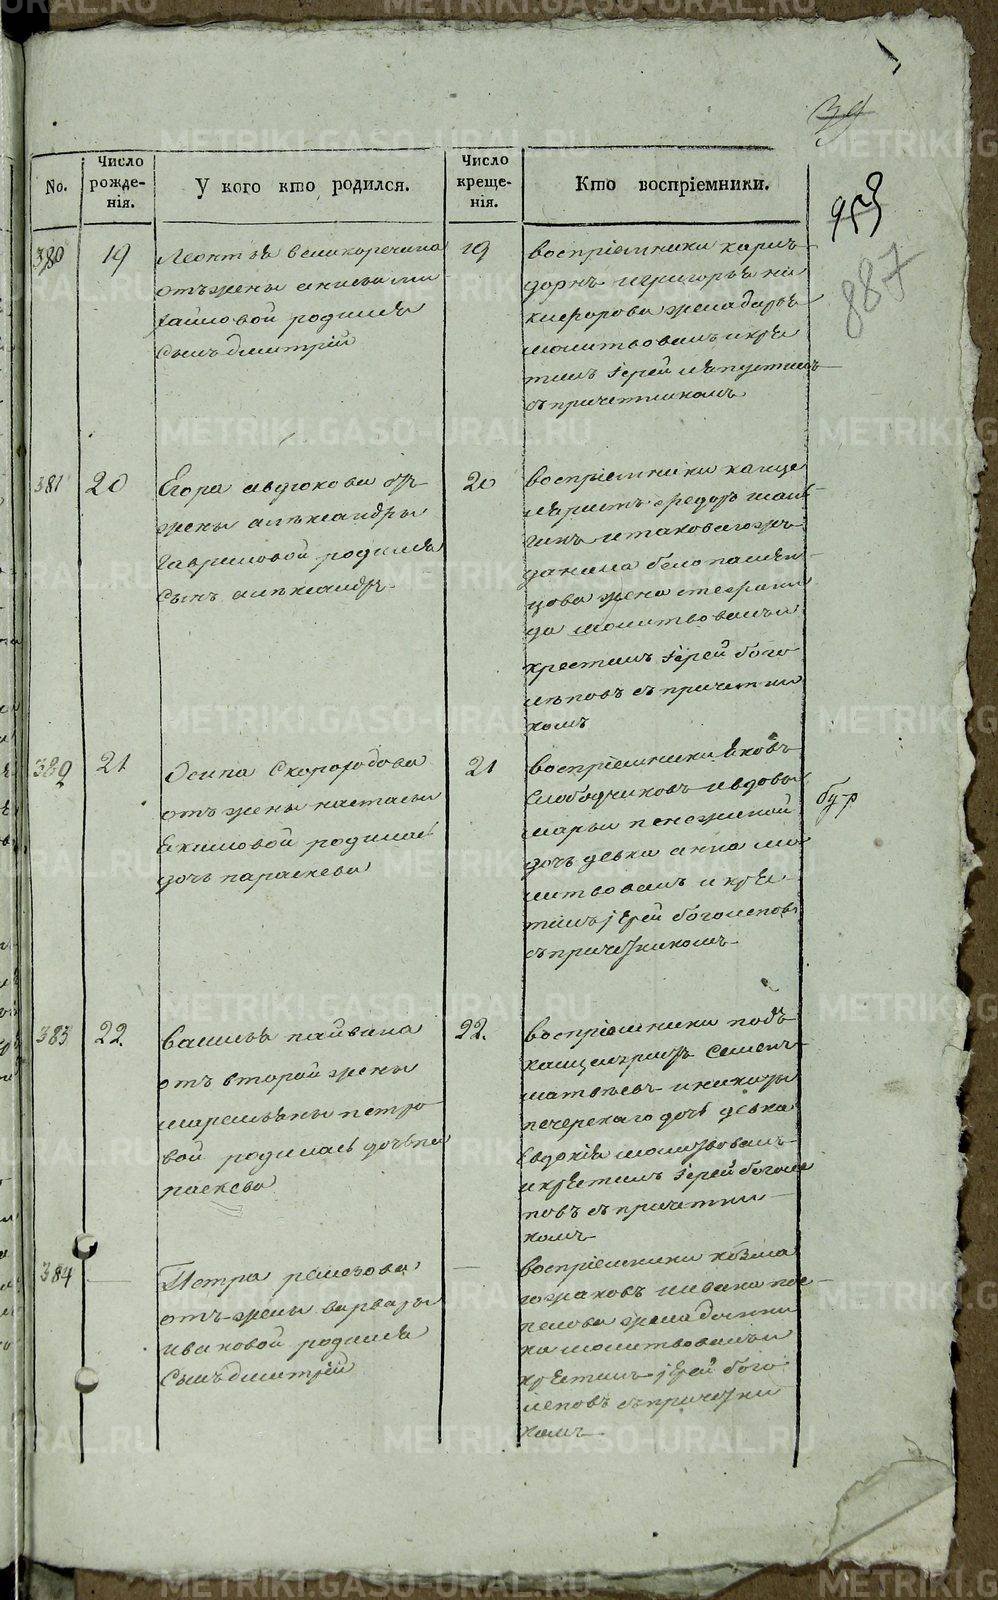 39
953
887
No.
Число рожде-нія.
У кого кто родился.
Число креще-нія.
Кто воспріемники.
380
19
Леонтья великоречина
отъ жены анисьи ми
хайловой родился
сынъ дмитрий
19
воспріемники
григорья ни
кифорова жена дарья
молитвовалъ и кре
стилъ Іерей
съ причетникомъ
381
20
Егора авдюкова отъ
жены александры
гавриловой родился
сынъ александръ
20
воспріемники канце
ляристъ федоръ
и таковагожъ
данила белопашен
цова жена степани
да молитвовалъ и
крестилъ Іерей бого
леповъ съ причетни
комъ
382
21
Осипа Скородобова
отъ жены настасьи
Екимовой родилась
дочь параскева
21
воспріемники яковъ
Слободчиковъ и вдовы
марьи пенежиной
дочь девка анна мо
литвовалъ и кре
стилъ іерей боголеповъ
съ причетникомъ
бур
383
22
василья пайвина
отъ второй жены
маремьяны петро
вой родилась дочь па
раскева
22.
воспріемники подъ
канцеляристъ Семенъ
матвеевъ и никиты
печерскаго дочь девка
Евдокія молитвовалъ
и крестилъ Іерей боголе
повъ съ причетни
комъ
384
Петра ремезова
отъ жены варвары
ивановой родился
Сынъ дмитрій
воспріемники козма
и ивана пос
пелова жена домни
ка молитвовалъ и
крестилъ іерей бого
леповъ съ причетни
комъ
METRIKI.GASO-URAL.RU